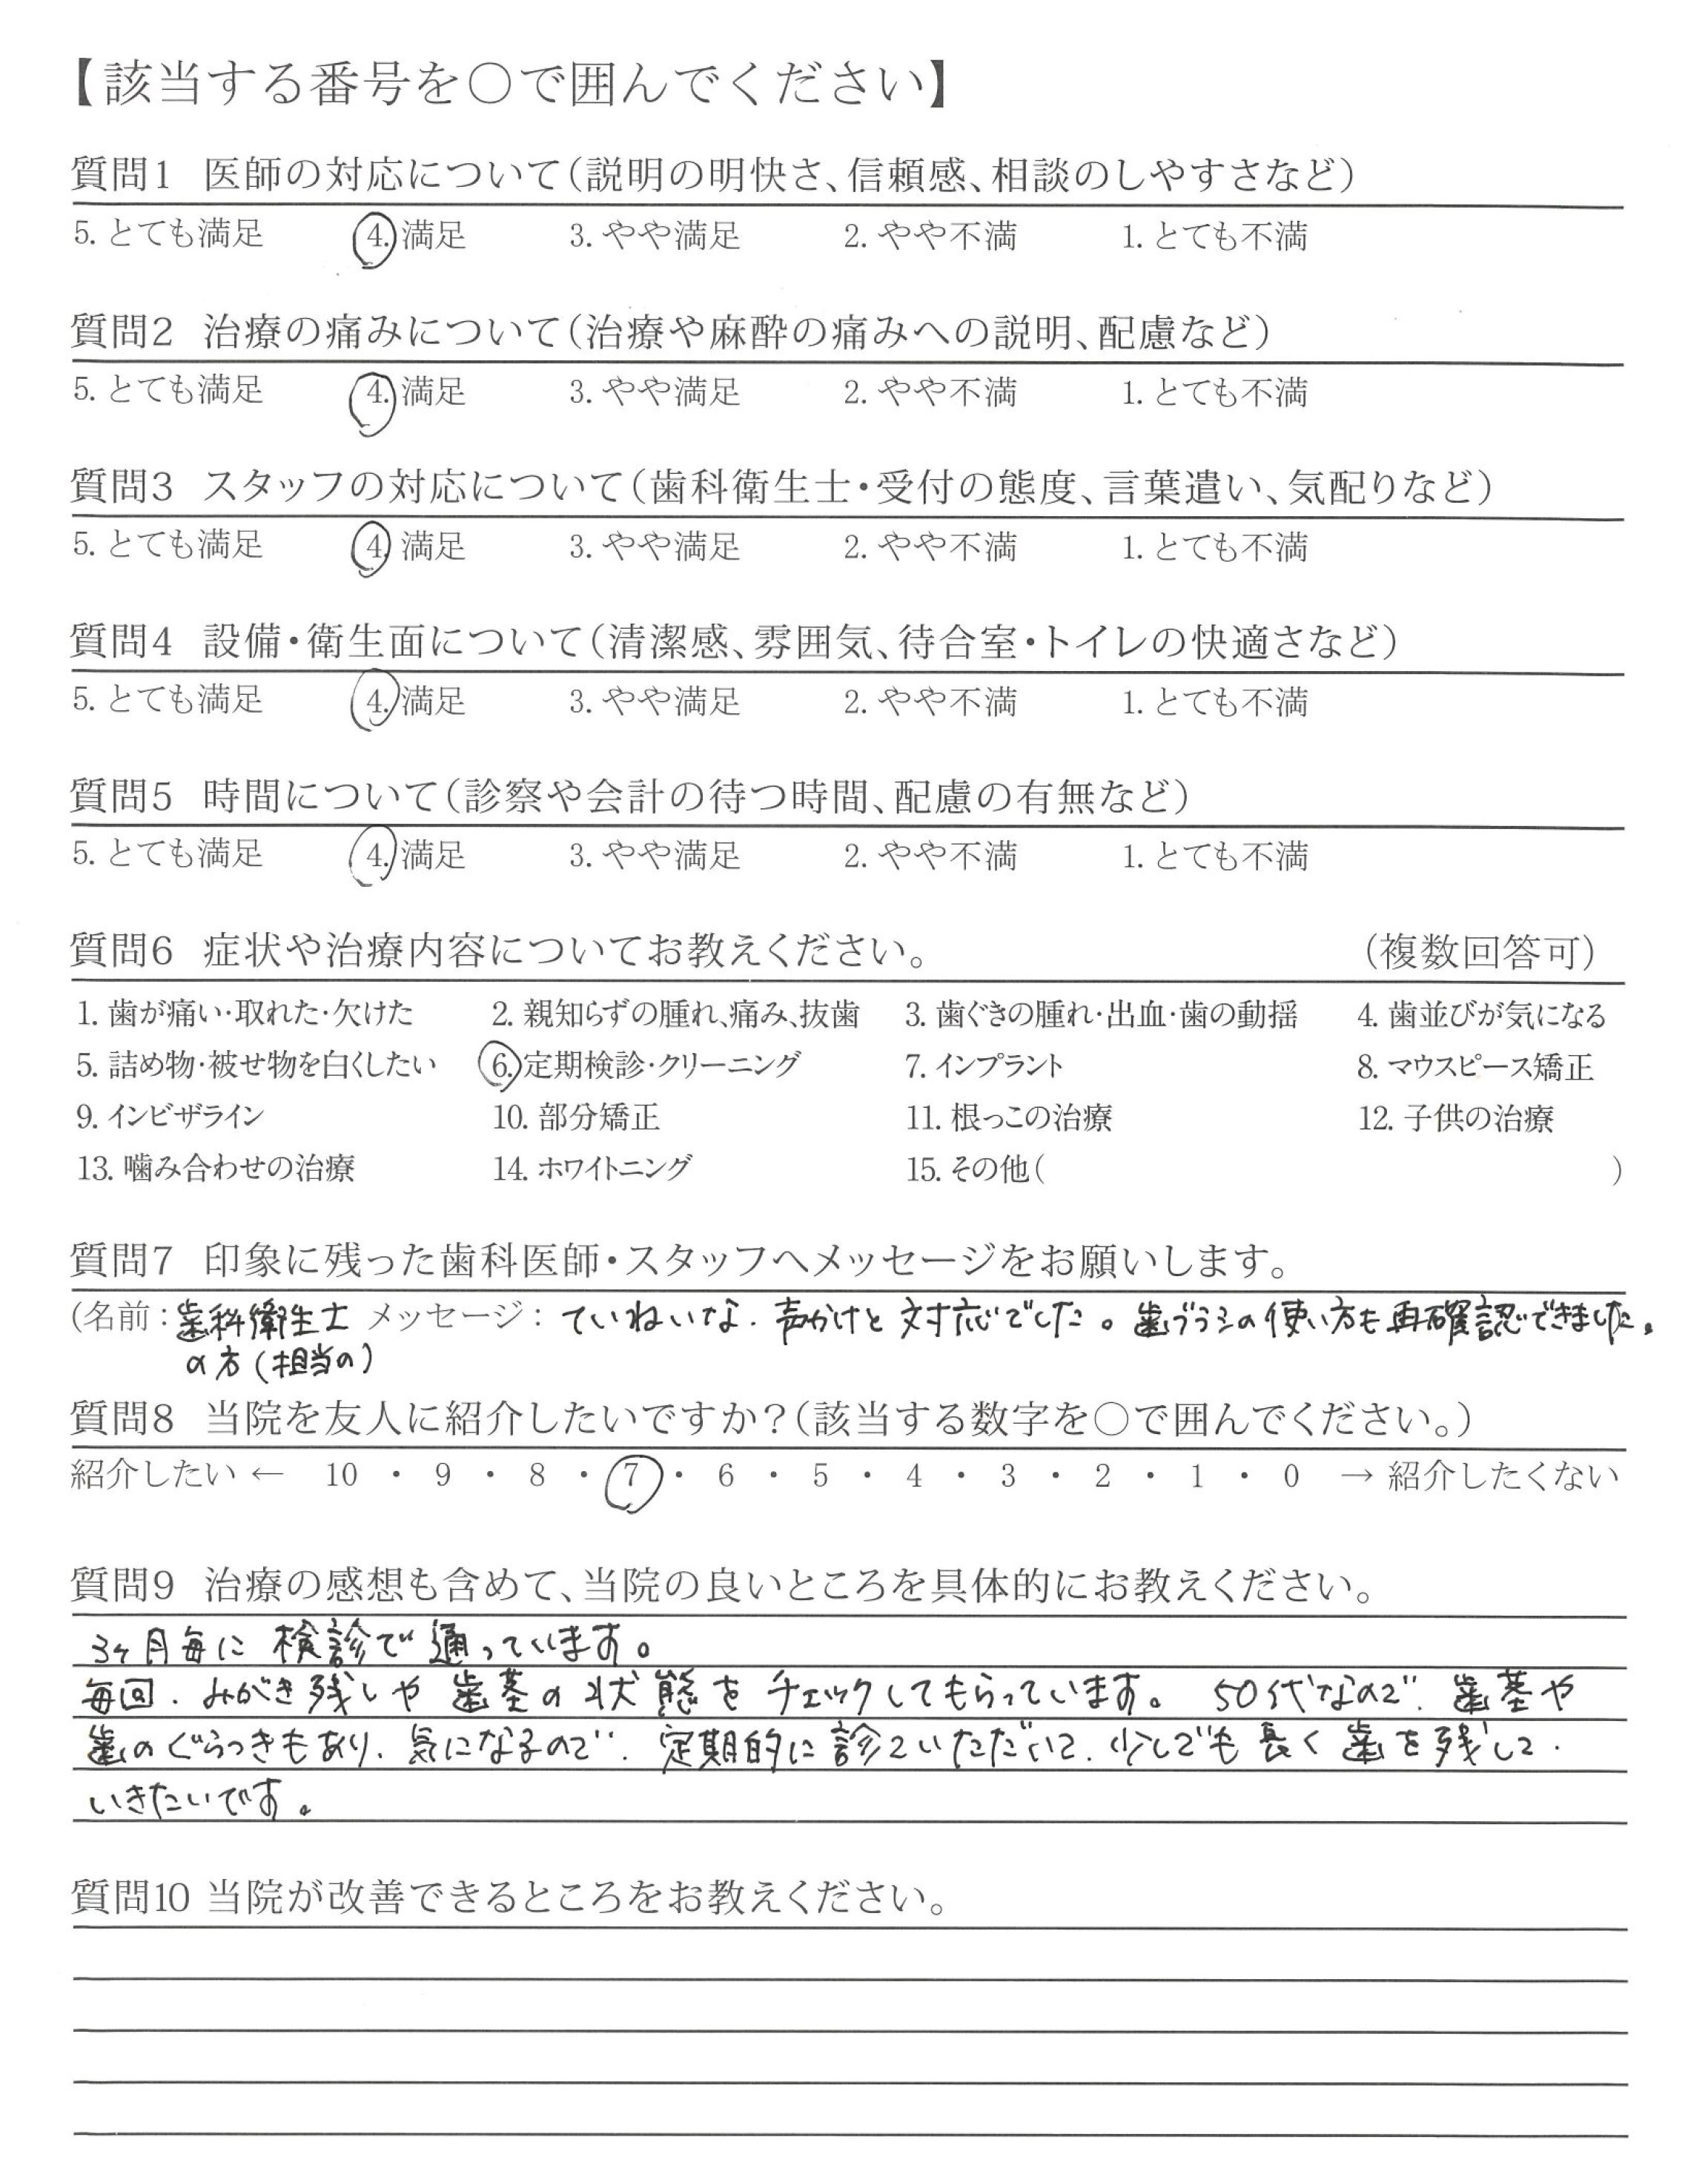 【該当する番号を○で囲んでください】
質問1 医師の対応について(説明の明快さ、信頼感、相談のしやすさなど)
5. とても満足 4. 満足 3. やや満足 2. やや不満 1. とても不満
質問2 治療の痛みについて(治療や麻酔の痛みへの説明、配慮など)
5. とても満足 4. 満足 3. やや満足 2. やや不満 1. とても不満
質問3 スタッフの対応について(歯科衛生士・受付の態度、言葉遣い、気配りなど)
5. とても満足 4. 満足 3. やや満足 2. やや不満 1. とても不満
質問4 設備・衛生面について(清潔感、雰囲気、待合室・トイレの快適さなど)
5. とても満足 4. 満足 3. やや満足 2. やや不満 1. とても不満
質問5 時間について(診察や会計の待つ時間、配慮の有無など)
5. とても満足 4. 満足 3. やや満足 2. やや不満 1. とても不満
質問6 症状や治療内容についてお教えください。 (複数回答可)
1. 歯が痛い・取れた・欠けた 2. 親知らずの腫れ、痛み、抜歯 3. 歯ぐきの腫れ・出血・歯の動揺 4. 歯並びが気になる
5. 詰め物・被せ物を白くしたい 6. 定期検診・クリーニング 7. インプラント 8. マウスピース矯正
9. インビザライン 10. 部分矯正 11. 根っこの治療 12. 子供の治療
13. 噛み合わせの治療 14. ホワイトニング 15. その他( )
質問7 印象に残った歯科医師・スタッフへメッセージをお願いします。
(名前：歯科衛生士 メッセージ：ていねいな、声かけと対応でした。歯ブラシの使い方も再確認できました。
の方(担当の)
質問8 当院を友人に紹介したいですか？(該当する数字を○で囲んでください。)
紹介したい ← 10 ・ 9 ・ 8 ・ 7 ・ 6 ・ 5 ・ 4 ・ 3 ・ 2 ・ 1 ・ 0 → 紹介したくない
質問9 治療の感想も含めて、当院の良いところを具体的にお教えください。
3ヶ月毎に検診で通っています。
毎回、みがき残しや歯茎の状態をチェックしてもらっています。50代なので、歯茎や
歯のぐらつきもあり、気になるので、定期的に診ていただいて、少しでも長く歯を残して、
いきたいです。
質問10 当院が改善できるところをお教えください。